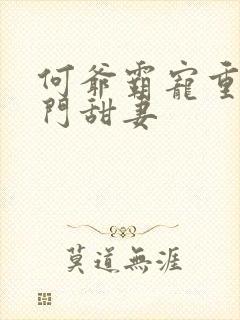 何爺霸寵重
門甜妻
莫道無涯